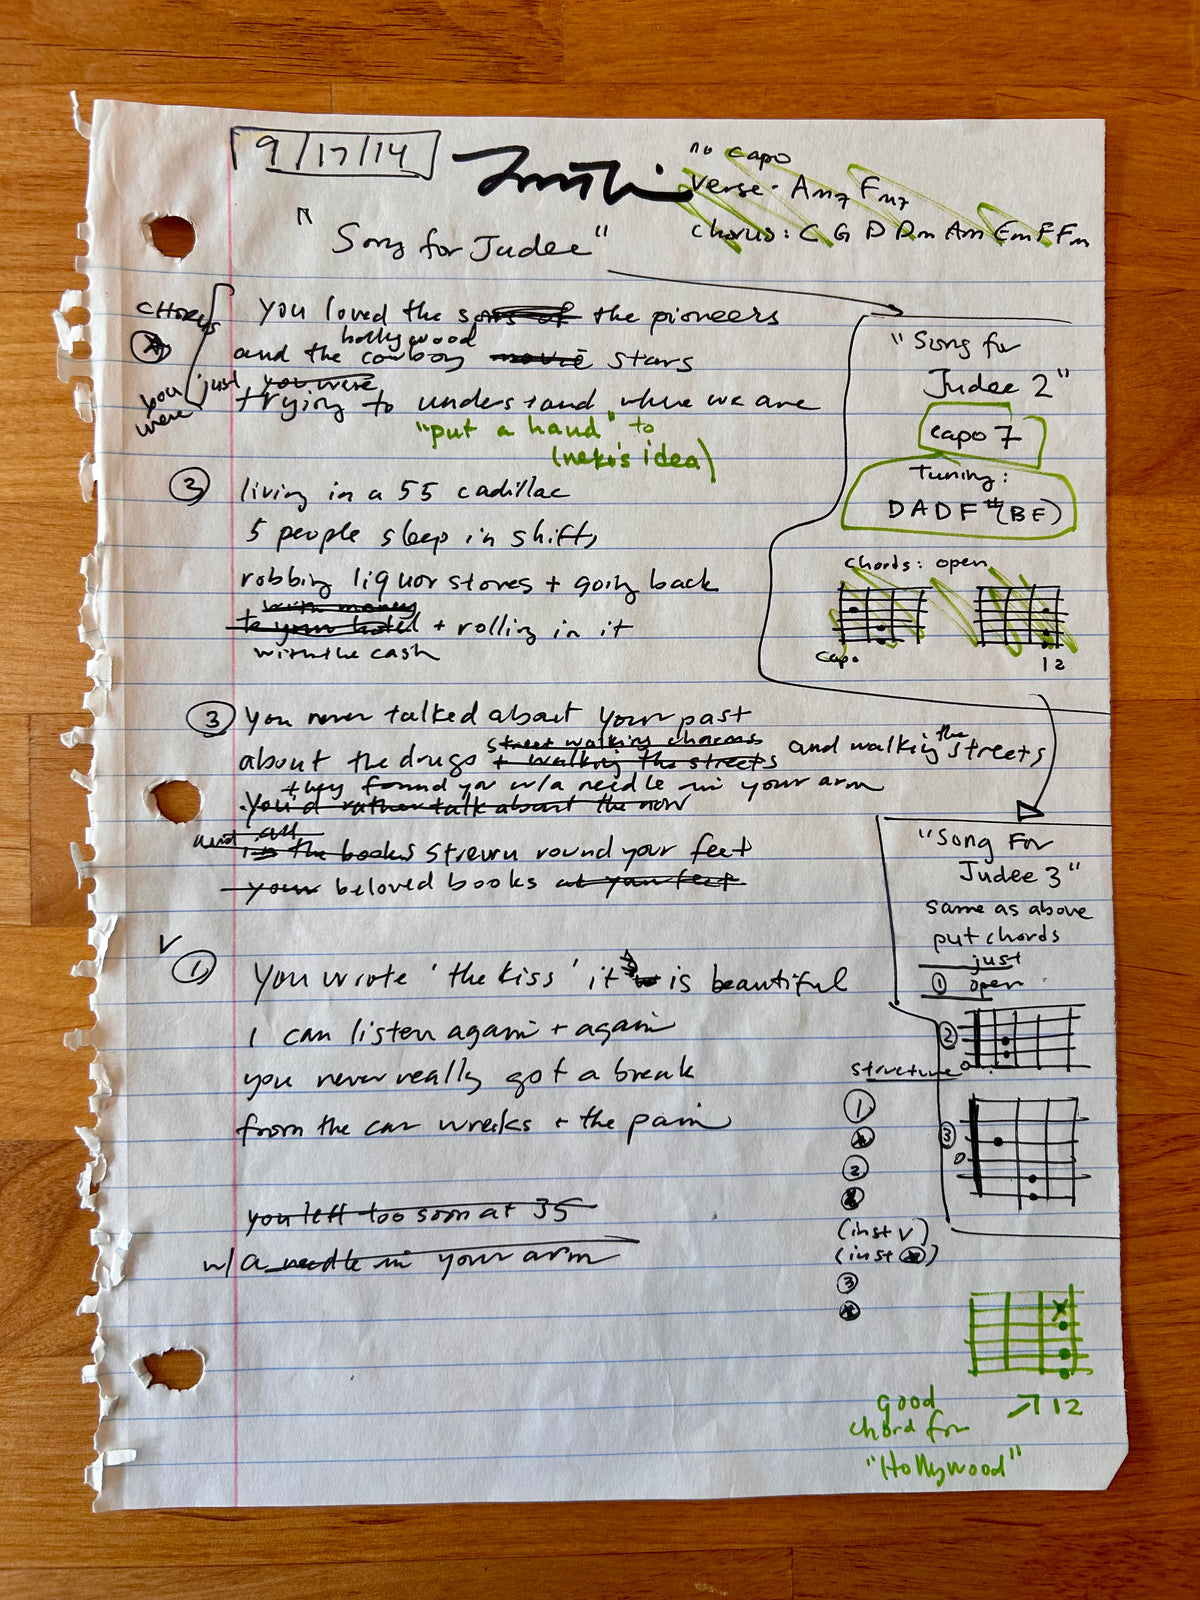 9/17/14
"no capo
Verse - Am7 Fm7
chorus: C G D Dm Am Em F Fm
"Song for Judee"
CHORUS
you loved the sons of the pioneers
hollywood
and the cowboy movie stars
you were just you were
trying to understand where we are
"put a hand" to
(neko's idea)
② living in a 55 cadillac
5 people sleep in shifts
robbing liquor stores + going back
with money
to your hotel + rolling in it
with the cash
③ you never talked about your past
street walking charms
about the drugs + walking the streets and walking the streets
they found you w/a needle in your arm
you'd rather talk about the now
and all
in the books strewn round your feet
your beloved books at your feet
V
① you wrote 'the kiss' it is beautiful
I can listen again + again
you never really got a break
from the car wrecks + the pain
you left too soon at 35
w/a needle in your arm
"Song for
Judee 2"
capo 7
Tuning:
DADF#(BE)
chords: open
capo
12
"Song For
Judee 3"
same as above
put chords
just
① open
②
0
③
0
structure
①
②
(inst V)
(inst )
③
12
good
chord for
"Hollywood"